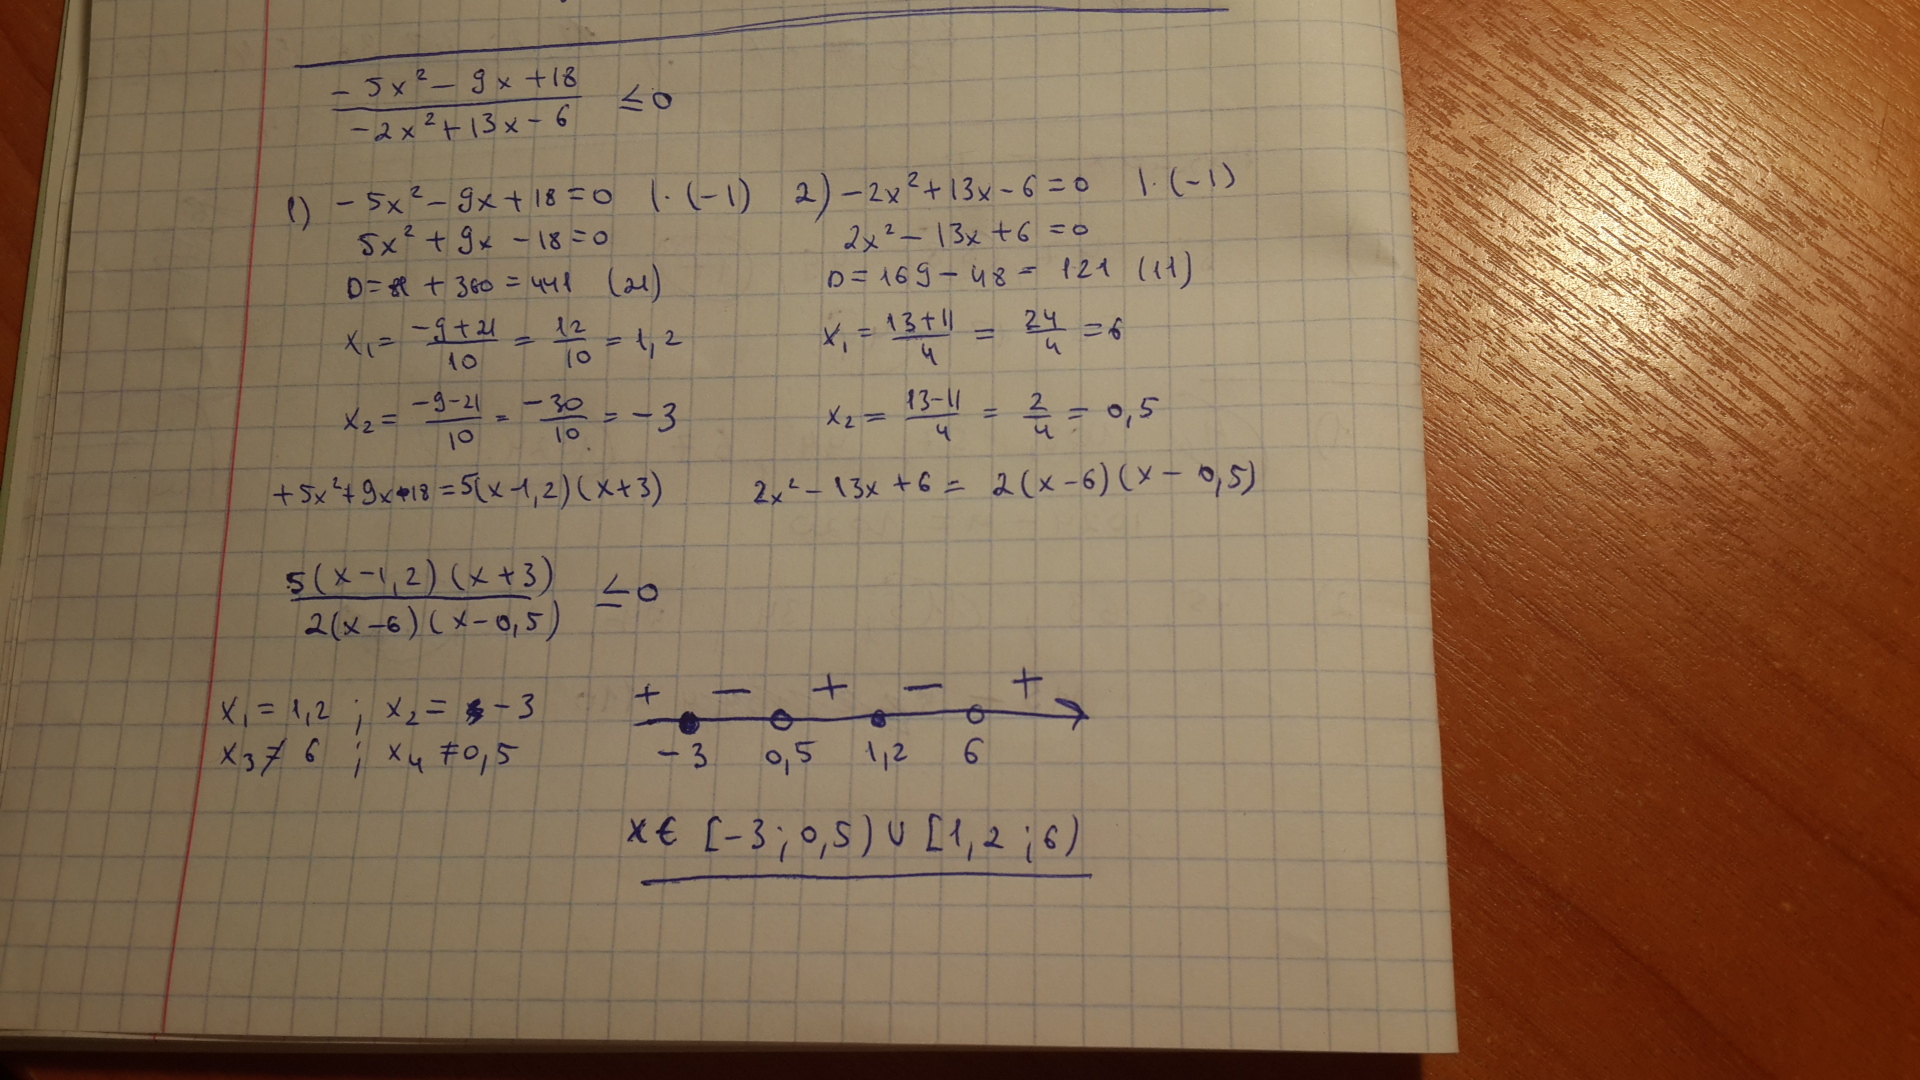 -5x² - 9x + 18
-2x² + 13x - 6
≤ 0
1) -5x² - 9x + 18 = 0 | · (-1)
5x² + 9x - 18 = 0
D = 81 + 360 = 441 (21)
x₁ = -9+21/10 = 12/10 = 1,2
x₂ = -9-21/10 = -30/10 = -3
+5x² + 9x - 18 = 5(x-1,2)(x+3)
2) -2x² + 13x - 6 = 0 | · (-1)
2x² - 13x + 6 = 0
D = 169 - 48 = 121 (11)
x₁ = 13+11/4 = 24/4 = 6
x₂ = 13-11/4 = 2/4 = 0,5
2x² - 13x + 6 = 2(x-6)(x - 0,5)
5(x-1,2)(x+3)
2(x-6)(x-0,5)
≤ 0
x₁ = 1,2 ; x₂ = -3
x₃ ≠ 6 ; x₄ ≠ 0,5
+ - + - +
-3 0,5 1,2 6
x ∈ [-3; 0,5) ∪ [1,2 ; 6)